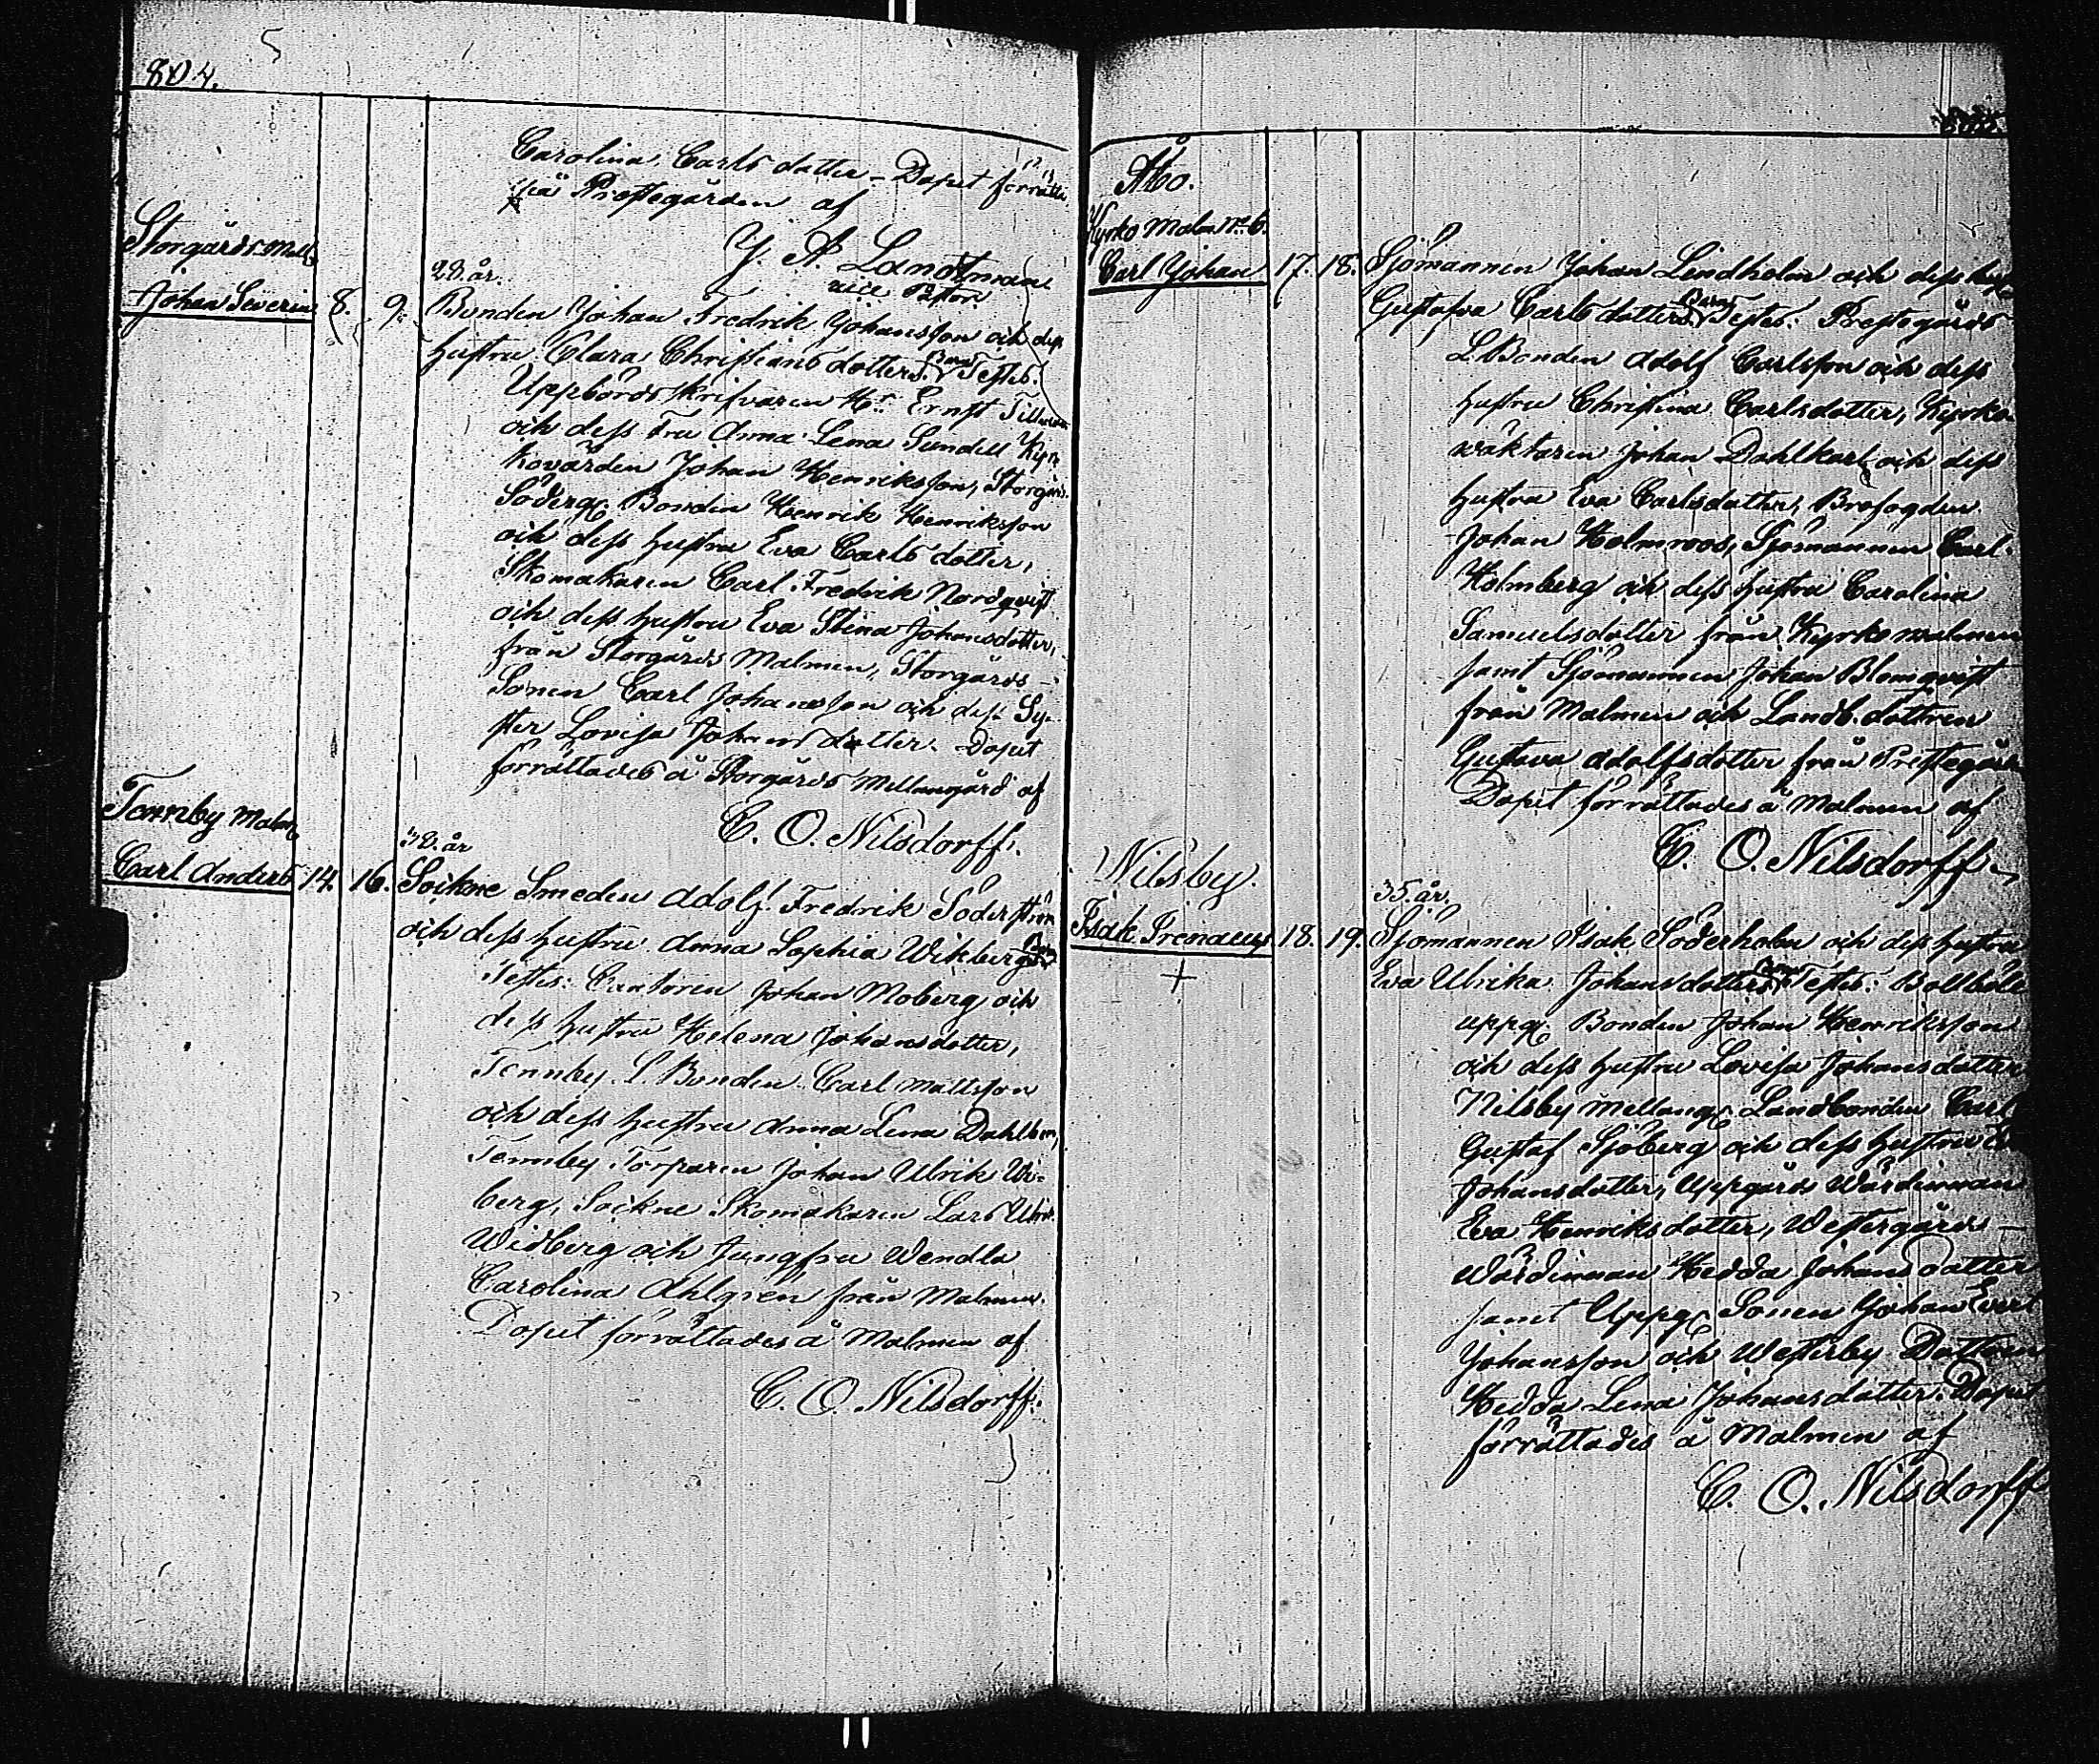 804.
Carolina Carlsdotter – Dopet förrätta
på Prestegården af
J. A. Landtman
vice Pastor
Storgårds Mell
28. år.
Johan Severin 8. 9. Bonden Johan Fredrik Johansson och dess
hustru Clara Christiansdotters Barn Testes:
Uppbördsskrifvaren Hr. Ernst
och dess Fru Anna Lena Sundell Kyr
kovärden Johan Henriksson, Storgårds
Söderg. Bonden Henrik Henriksson
och dess hustru Eva Carlsdotter,
Skomakaren Carl Fredrik Nordqvist
och dess hustru Eva Stina Johansdotter,
från Storgårds Malmen, Storgårds –
Sonen Carl Johansson och dess Sy-
ster Lovisa Johansdotter. Dopet
förrättades å Storgårds Mellangård af
C. O. Nilsdorff.
Tennby Malm
32. år
Carl Anders 14. 16. Sockne Smeden Adolf Fredrik Söderström
och dess hustru Anna Sophia Wikbergs Barn
Testes: Cantoren Johan Moberg och
dess hustru Helena Johansdotter,
Tennby L. Bonden Carl Mattsson
och dess hustru Anna Lena Dahlbom,
Tennby Torparen Johan Ulrik Wi-
berg, Sockne Skomakaren Lars Ulrik
Widberg och Jungfru Wendla
Carolina Ahlgren från Malmen.
Dopet förrättades å Malmen af
C. O. Nilsdorff.
Åbo.
Kyrko Malm No 6.
Carl Johan 17. 18. Sjömannen Johan Lindholm och dess hust
Gustafva Carlsdotters Barn Testes: Prestegårds
L. Bonden Adolf Carlsson och dess
hustru Christina Carlsdotter, Kyrko
wäktaren Johan Dahlkarl och dess
hustru Eva Carlsdotter, Brofogden
Johan Holmroos, Sjömannen Carl
Holmberg och dess hustru Carolina
Samuelsdotter från Kyrkomalmen
samt Sjömannen Johan Blomqvist
från Malmen och Landb. dottren
Gustava Adolfsdotter från Prestegård
Dopet förrättades å Malmen af
C. O. Nilsdorff.
Nilsby.
35. år.
Isak Irenaeus 18. 19. Sjömannen Isak Söderholm och dess hustru
+
Eva Ulrika Johansdotters Barn Testes: Bollböle
uppg. Bonden Johan Henriksson
och dess hustru Lovisa Johansdotter
Nilsby Mellang. Landbonden Carl
Gustaf Sjöberg och dess hustru
Johansdotter, Uppgårds Wärdinnan
Eva Henriksdotter, Westergårds –
Wärdinnan Hedda Johansdotter
samt Uppg. Sonen Johan Evert
Johansson och Westerby Dottren
Hedda Lena Johansdotter. Dopet
förrättades å Malmen af
C. O. Nilsdorff